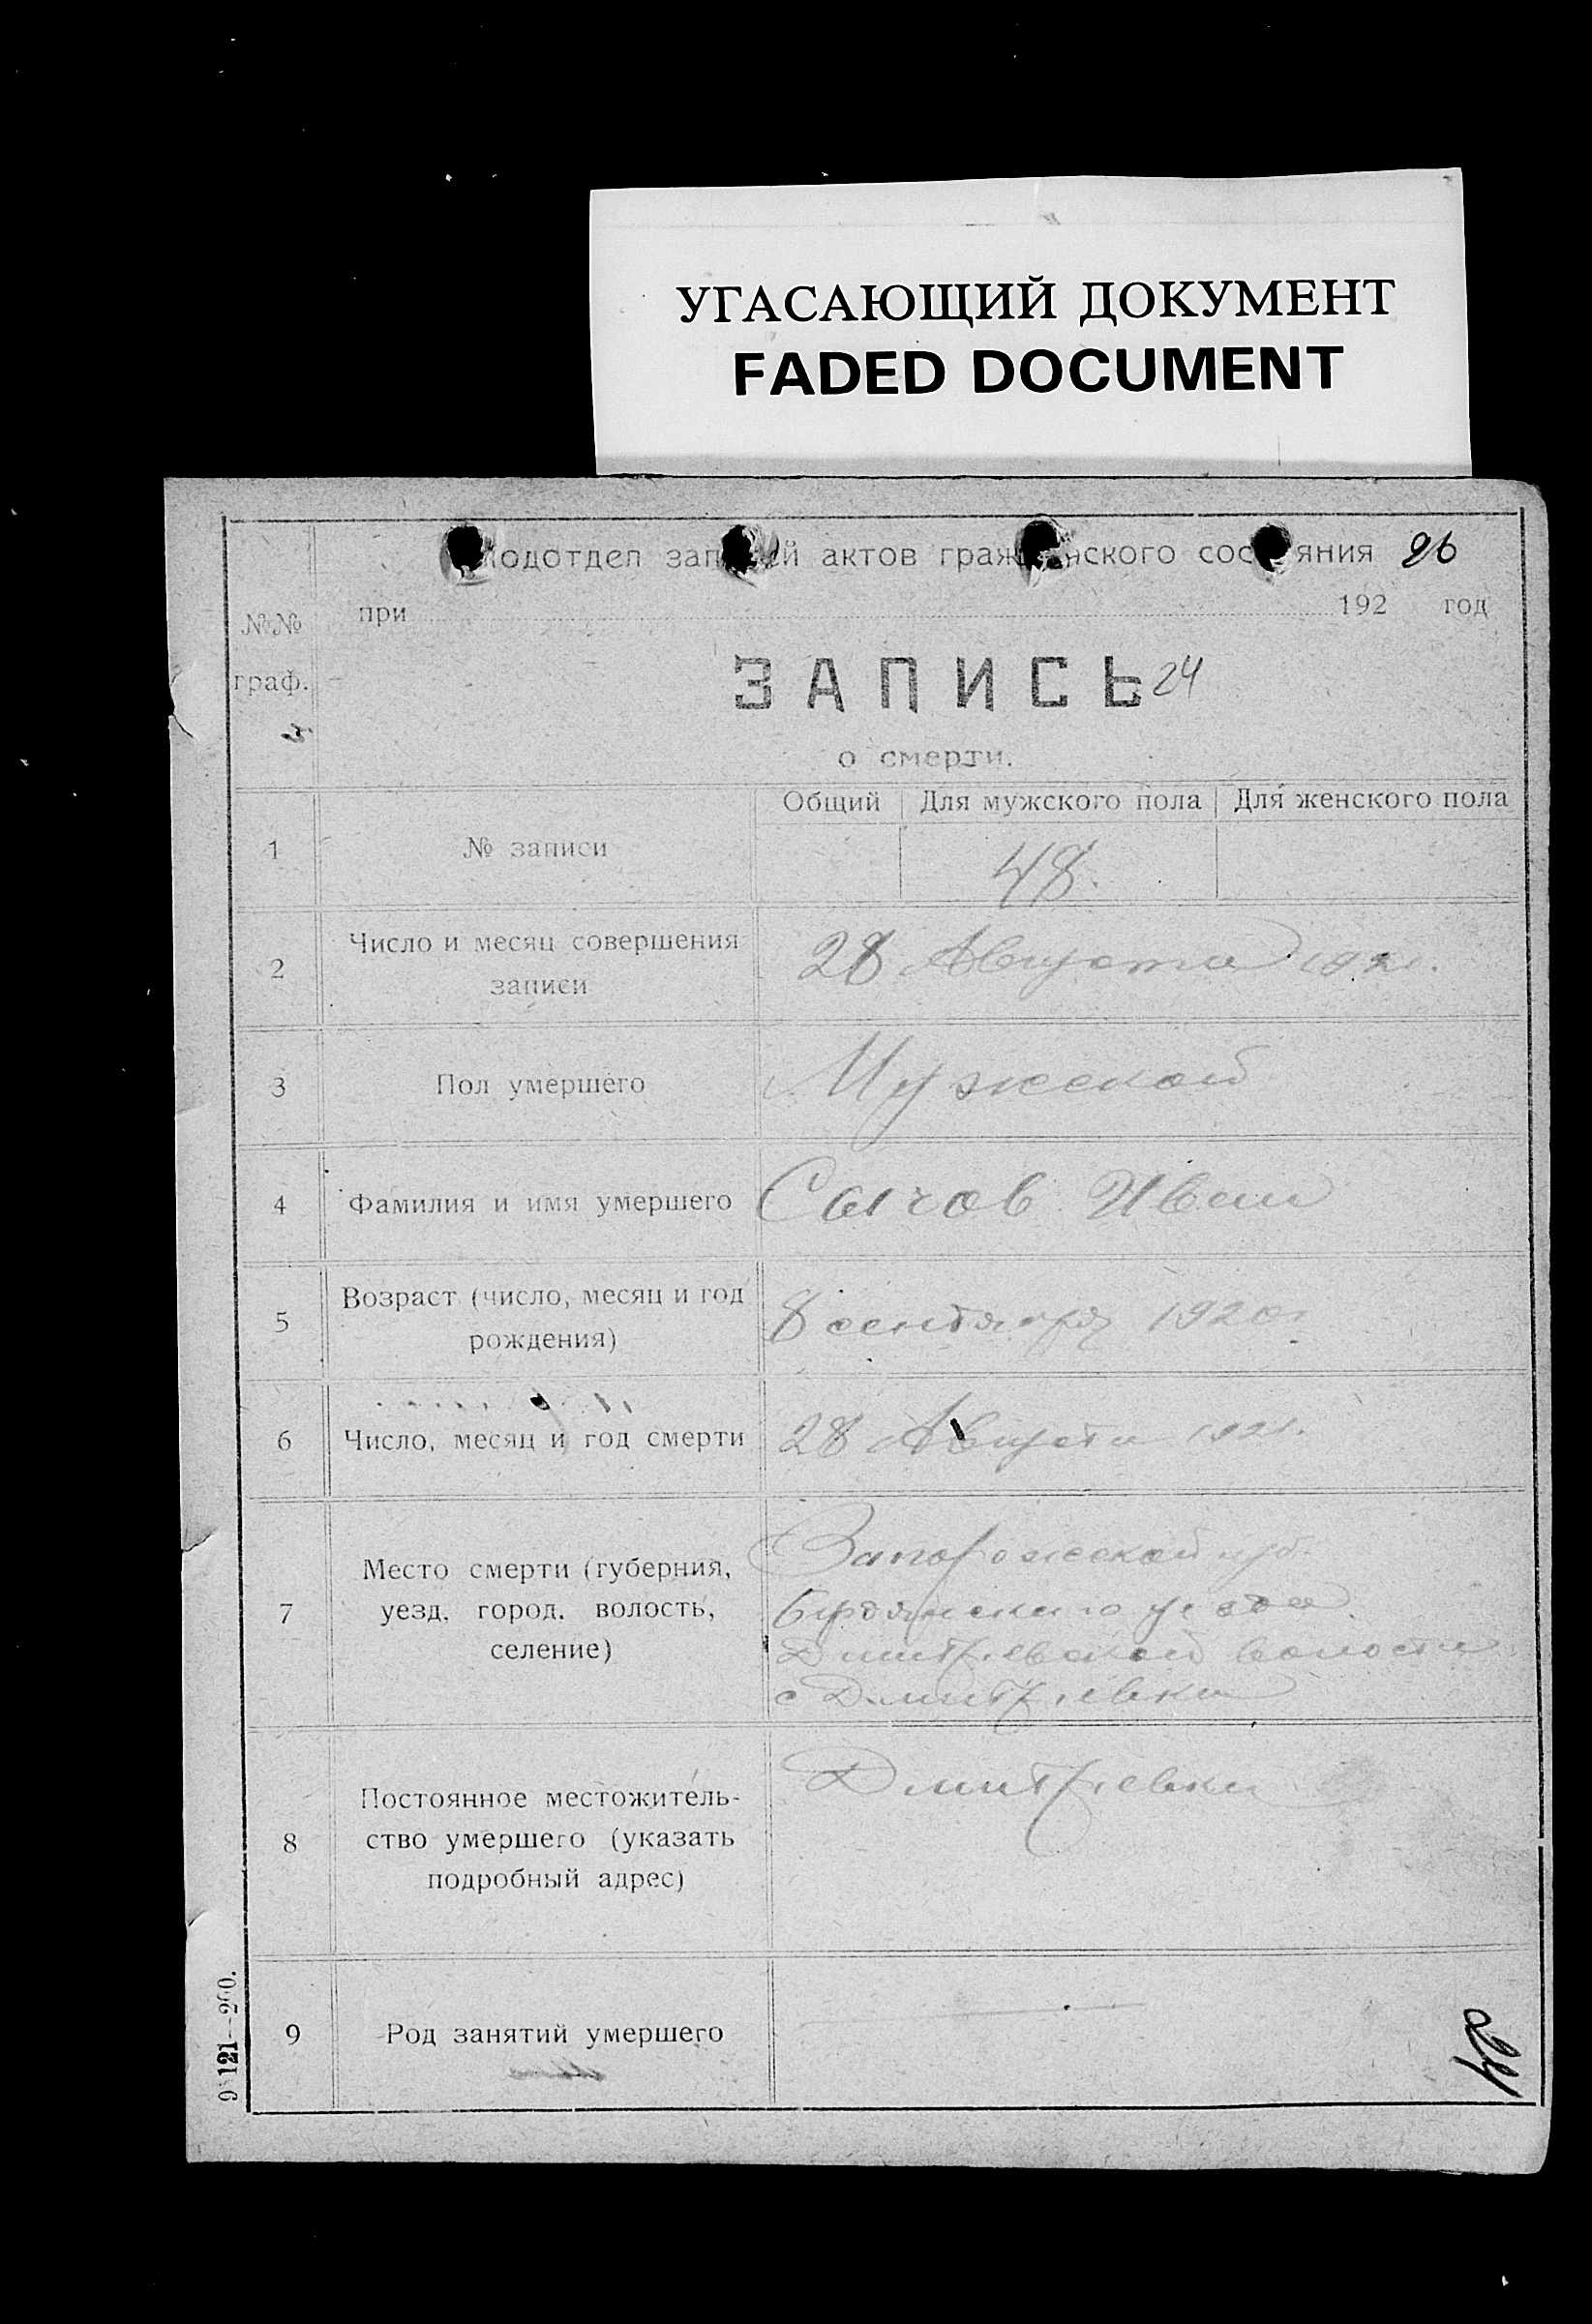 УГАСАЮЩИЙ ДОКУМЕНТ
FADED DOCUMENT
Подотдел записей актов гражданского состояния 26
№№ граф.
при 192 год
ЗАПИСЬ 24
о смерти.
Общий Для мужского пола Для женского пола
1 № записи 48.
2 Число и месяц совершения
записи
28 Августа 1921.
3 Пол умершего Мужской
4 Фамилия и имя умершего Сычов Иван
5 Возраст (число, месяц и год
рождения)
8 сентября 1920г
6 Число, месяц и год смерти 28 Августа 1921.
7 Место смерти (губерния,
уезд, город, волость,
селение)
Запорожской губ.
Бердянского уезда
Дмитриевской волости
с Дмитриевка
8 Постоянное местожитель-
ство умершего (указать
подробный адрес)
Дмитриевка
9 Род занятий умершего
24